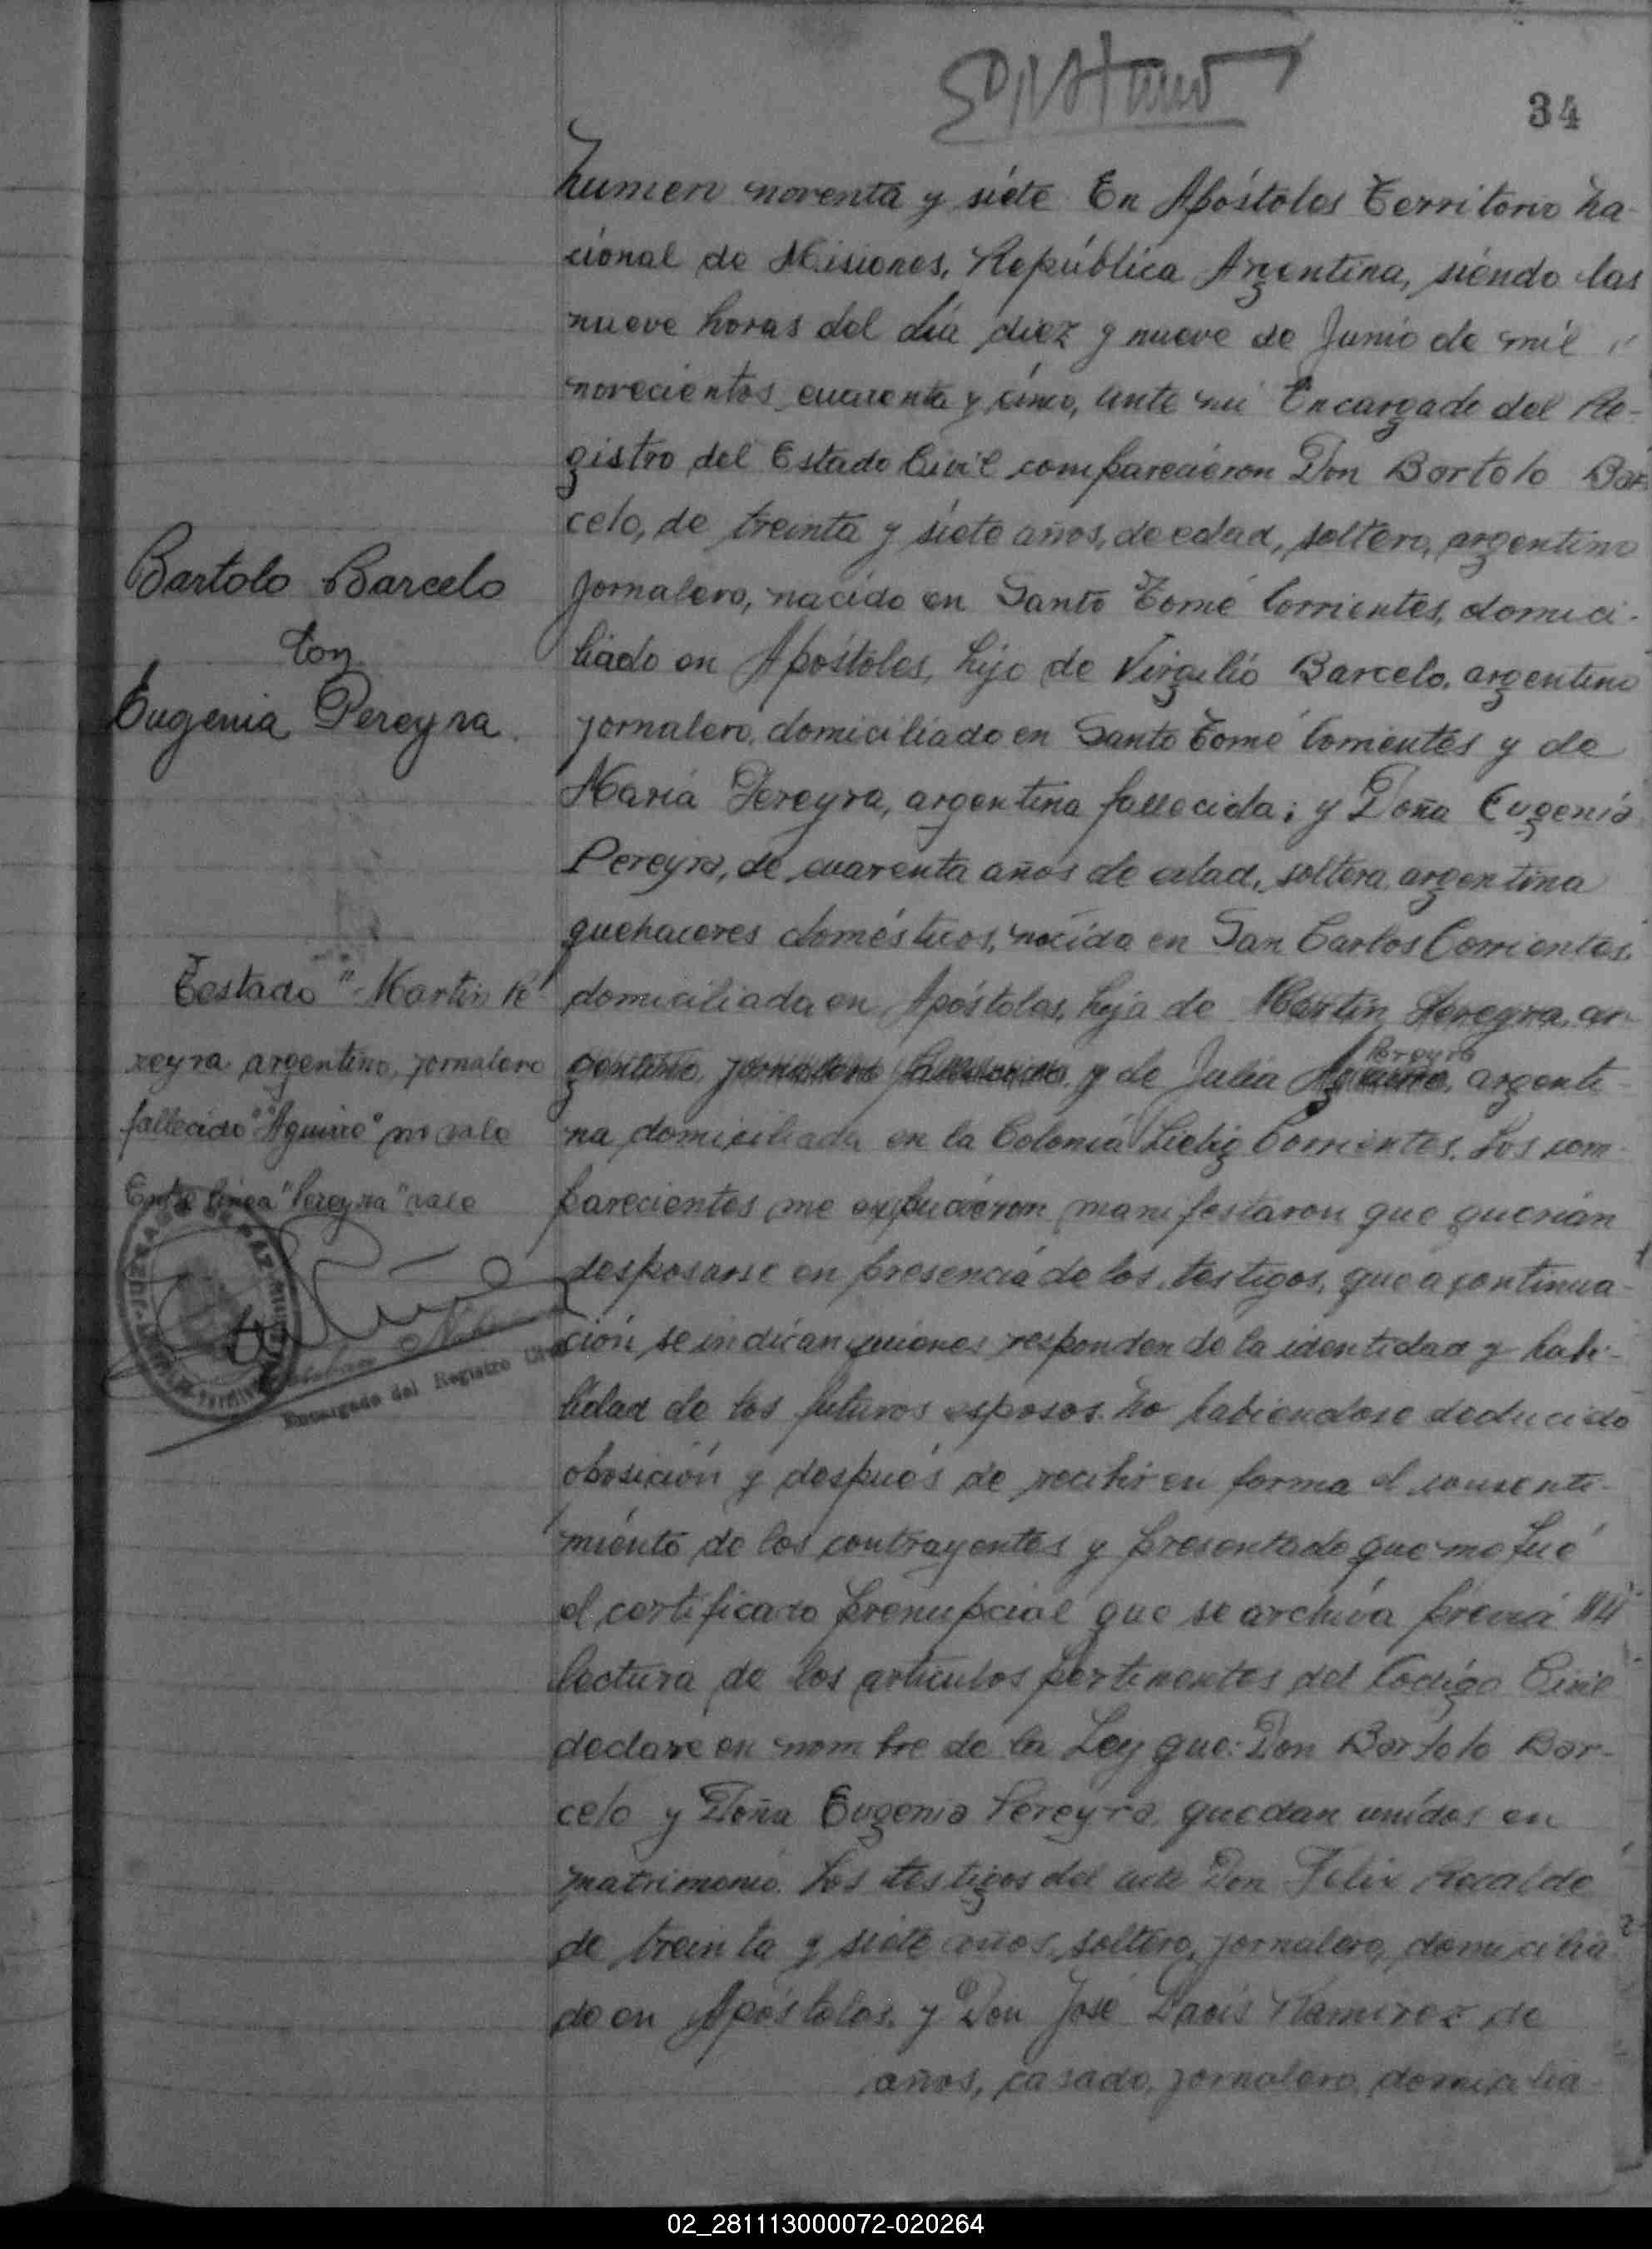 34
Numero noventa y siete En Apóstoles Territorio Na-
cional de Misiones, República Argentina, siendo las
nueve horas del día diez y nueve de Junio de mil
novecientos cuarenta y cinco, ante mi Encargado del Re-
gistro del Estado Civil comparecieron Don Bartolo Bar-
celo, de treinta y siete años, de edad, soltero, argentino
Bartolo Barcelo
Con
Eugenia Pereyra.
jornalero, nacido en Santo Tomé Corrientes, domici-
liado en Apóstoles, hijo de Virgilio Barcelo, argentino
jornalero, domiciliado en Santo Tomé Corrientes y de
María Pereyra, argentina fallecida; y Doña Eugenia
Pereyra, de cuarenta años de edad, soltera, argentina
quehaceres domésticos, nacida en San Carlos Corrientes,
domiciliada en Apóstoles, hija de Martin Pereyra, ar-
gentino, jornalero fallecido, y de Julia Aguirre, argenti-
Pereyra
na domiciliada en la Colonia Liebig Corrientes. Los com-
Testado "Martin Pe
reyra argentino, jornalero
fallecido" "Aguirre" no vale
Entre línea "Pereyra" vale
Encargado del Registro Civil
parecientes me manifestaron que querían
desposarse en presencia de los testigos, que a continua-
ción se indican quienes responden de la identidad y habi-
lidad de los futuros esposos. No habiendose deducido
oposición y después de recibir en forma el consenti-
miento de los contrayentes y presentado que me fué
el certificado prenupcial que se archiva previa
lectura de los artículos pertinentes del Codigo Civil
declare en nombre de la Ley que: Don Bartolo Bar-
celo y Doña Eugenia Pereyra, quedan unidos en
matrimonio. Los testigos del acto Don Felix Recalde
de treinta y siete años, soltero, jornalero, domicilia-
do en Apóstoles, y Don José Ramirez de
años, casado, jornalero, domicilia-
02_281113000072-020264